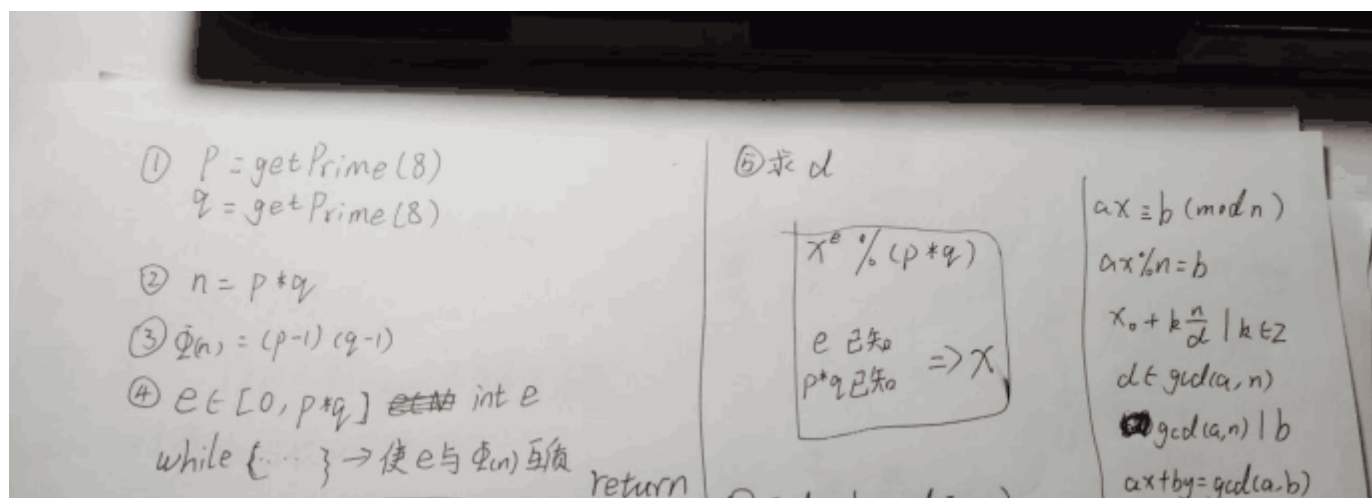 ① P = getPrime(8)
q = getPrime(8)
② n = p*q
③ Φ(n) = (p-1)(q-1)
④ e∈[0, p*q] int e
while {……} → 使e与Φ(n)互质
return
⑤求 d
x^e %(p*q)
e 已知
p*q已知 => x
ax≡b(mod n)
ax%n=b
x₀+k n/d | k∈Z
d∈gcd(a,n)
gcd(a,n)|b
ax+by=gcd(a,b)